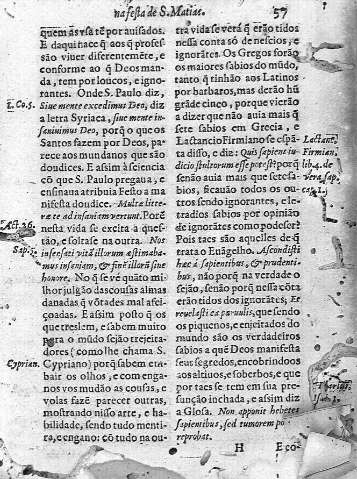 na festa de S. Matias. 57
quem às vsa tẽ por auisados.
E daqui nace q̃ aos q̃ profes-
são viuer diferentemẽte, e
conforme ao q̃ Deos man-
da, tem por loucos, e igno-
rantes. Onde S. Paulo diz,
2. Co. 5.
Siue mente excedimus Deo, diz
a letra Syriaca, siue mente in-
saniuimus Deo, porq̃ o que os
Santos fazem por Deos, pa-
rece aos mundanos que são
doudices. E assim à sciencia
cõ que S. Paulo pregaua, e
ensinaua atribuia Festo a ma
nifesta doudice. Multæ litte-
Act. 26.
ræ te ad insaniam verunt. Porẽ
nesta vida se excita a ques-
tão, e solta se na outra. Nos
Sap. 5.
insensati vitã illorum æstimaba-
mus insaniam, & finẽ illorũ sine
honore. No q̃ se vê quãto mi-
lhor julgão das cousas almas
danadas q̃ võtades mal afei-
çoadas. E assim posto q̃ os
que tresle m, e sabem muito
para o mũdo sejão trejeita-
dores (como lhe chama S.
Cyprian.
Cypriano) porq̃ sabem em-
bair os olhos, e com enga-
nos vos mudão as cousas, e
volas fazẽ parecer outras,
mostrando nisso arte, e ha-
bilidade, sendo tudo menti-
ra, e engano: cõ tudo na ou-
tra vida se verá q̃ erão tidos
nessa conta só de nescios, e
ignorãtes. Os Gregos forão
os maiores sabios do mũdo,
tanto q̃ tinhão aos Latinos
por barbaros, mas derão hũ
grãde cinco, porque vierão
a dizer que não auia mais q̃
sete sabios em Grecia, e
Lactancio Firmiano se espã-
Lactanc.
ta disso, e diz: Quis sapiens iu-
Firmian.
dicio stultorum esse potest? porq̃
lib. 4. de
senão auia mais que sete sa-
vera sap.
bios, ficauão todos os ou-
cap. 1.
tros sendo ignorantes, e le-
tradios sabios por opinião
de ignorãtes como pode ser?
Pois taes são aquelles de q̃
trata o Euãgelho. Ascondisti
hæc à sapientibus, & prudenti-
bus, não porq̃ na verdade o
sejão, senão porq̃ nessa cõta
erão tidos dos ignorãtes; Et
reuelasti ea paruulis, que sendo
os piquenos, e enjeitados do
mundo são os verdadeiros
sabios a quẽ Deos manifesta
seus segredos, encobrindoos
aos altiuos, e soberbos, e que
por taes se tem em sua pre-
sunção inchada, e assim diz
a Glosa. Non apponit hebetes
sapientibus, sed tumorem po
reprobat.
H E co-